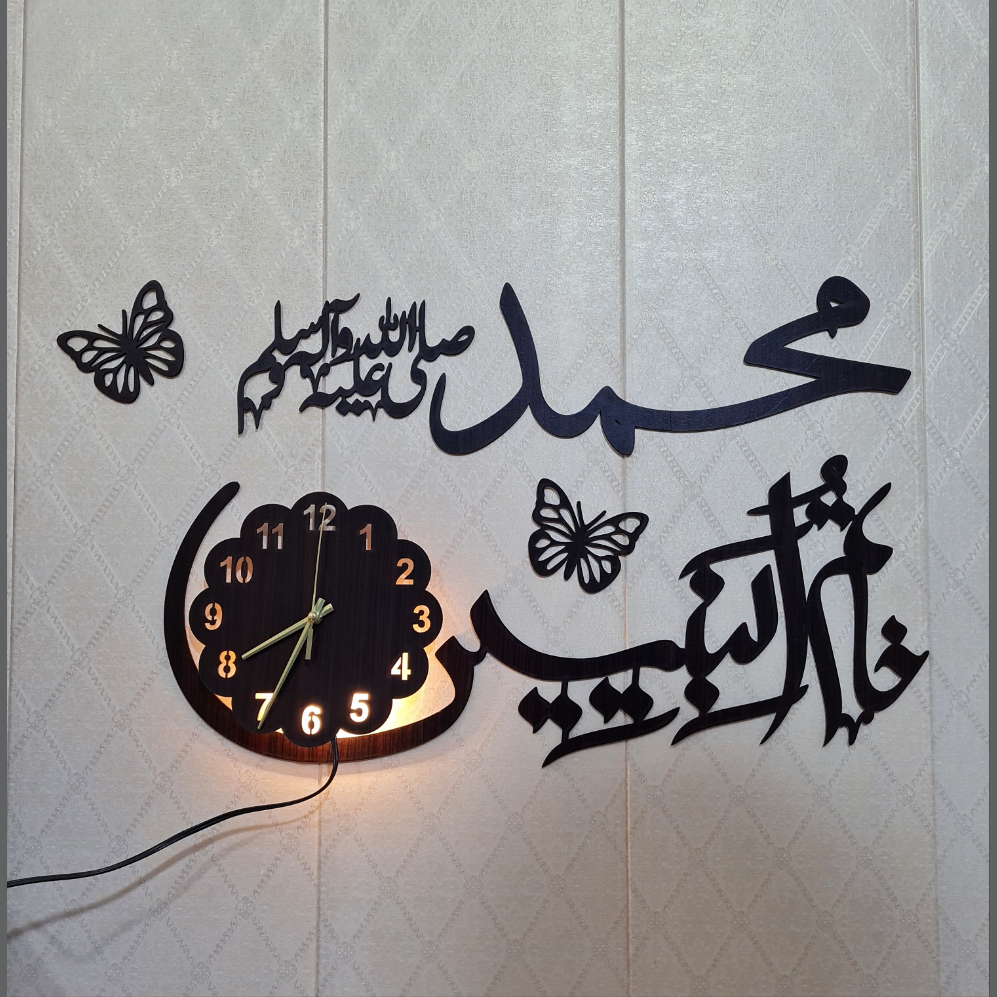 محمد صلی اللہ علیہ وآلہ وسلم
خاتم النبیین
12
1
2
3
4
5
6
7
8
9
10
11